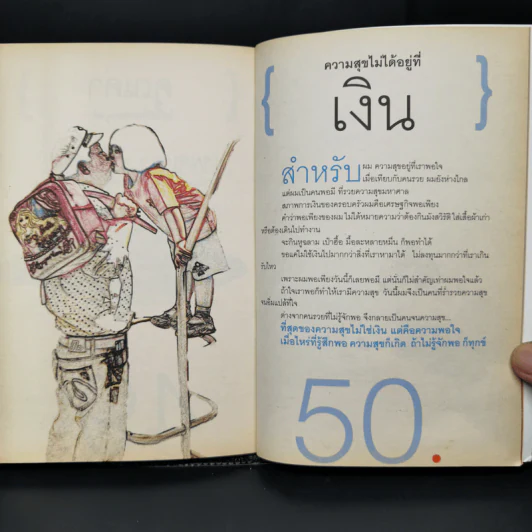 ความสุขไม่ได้อยู่ที่
{ เงิน }
สำหรับผม ความสุขอยู่ที่เราพอใจ
เมื่อเทียบกับคนรวย ผมยังห่างไกล
แต่ผมเป็นคนพอมี ที่รวยความสุขมหาศาล
สภาพการเงินของครอบครัวผมคือเศรษฐกิจพอเพียง
คำว่าพอเพียงของผม ไม่ได้หมายความว่าต้องกินมังสวิรัติ ใส่เสื้อผ้าเก่า
หรือต้องเดินไปทำงาน
จะกินหูฉลาม เป๋าฮื้อ มื้อละหลายหมื่น ก็พอทำได้
ขอแค่ไม่ใช้เงินไปมากกว่าสิ่งที่เราหามาได้ ไม่ลงทุนมากกว่าที่เราเกิน
รับไหว
เพราะผมพอเพียงวันนี้ก็เลยพอมี แต่นั่นก็ไม่สำคัญเท่าผมพอใจแล้ว
ถ้าใจเราพอก็ทำให้เรามีความสุข วันนี้ผมจึงเป็นคนที่ร่ำรวยความสุข
จนยิ้มแปล้ที่ใจ
ต่างจากคนรวยที่ไม่รู้จักพอ จึงกลายเป็นคนจนความสุข...
ที่สุดของความสุขไม่ใช่เงิน แต่คือความพอใจ
เมื่อไหร่ที่รู้สึกพอ ความสุขก็เกิด ถ้าไม่รู้จักพอ ก็ทุกข์
50.